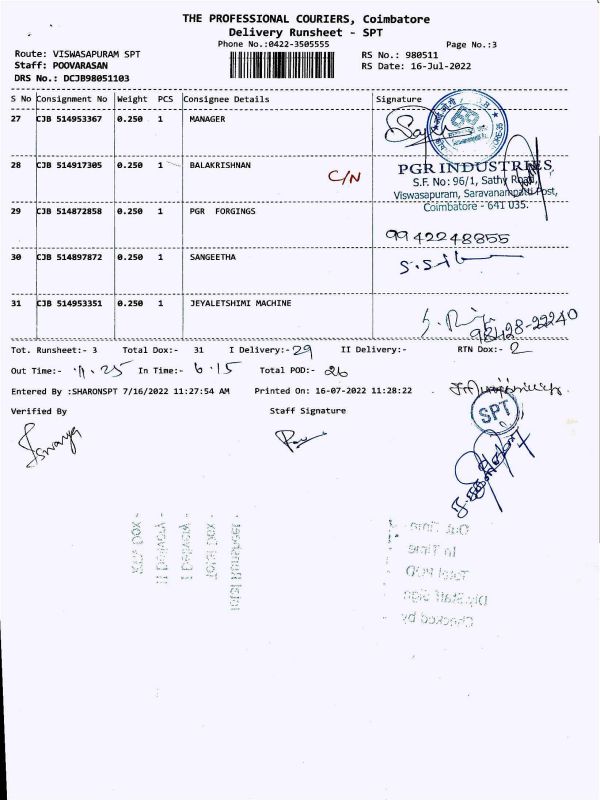 THE PROFESSIONAL COURIERS, Coimbatore
Delivery Runsheet - SPT
Phone No.:0422-3505555
Page No.:3
Route: VISWASAPURAM SPT
RS No.: 980511
Staff: POOVARASAN
RS Date: 16-Jul-2022
DRS No.: DCJB98051103
S No Consignment No Weight PCS Consignee Details Signature
27 CJB 514953367 0.250 1 MANAGER
28 CJB 514917305 0.250 1 BALAKRISHNAN C/N
PGR INDUSTRIES,
S.F. No: 96/1, Sathy Road,
Viswasapuram, Saravanampatti Post,
Coimbatore - 641 035.
29 CJB 514872858 0.250 1 PGR FORGINGS
9942248855
30 CJB 514897872 0.250 1 SANGEETHA
31 CJB 514953351 0.250 1 JEYALETSHIMI MACHINE
98428-22240
Tot. Runsheet:- 3 Total Dox:- 31 I Delivery:- 29 II Delivery:- RTN Dox:- 2
Out Time:- 11.25 In Time:- 6.15 Total POD:- 26
Entered By :SHARONSPT 7/16/2022 11:27:54 AM Printed On: 16-07-2022 11:28:22
Verified By Staff Signature
SPT
Iswarya
RTN Dox -
II Delivery -
I Delivery -
Total Dox -
Total Runsheet -
Out Time -
In Time
Total POD
Dly.Staff Sign
Checked by -